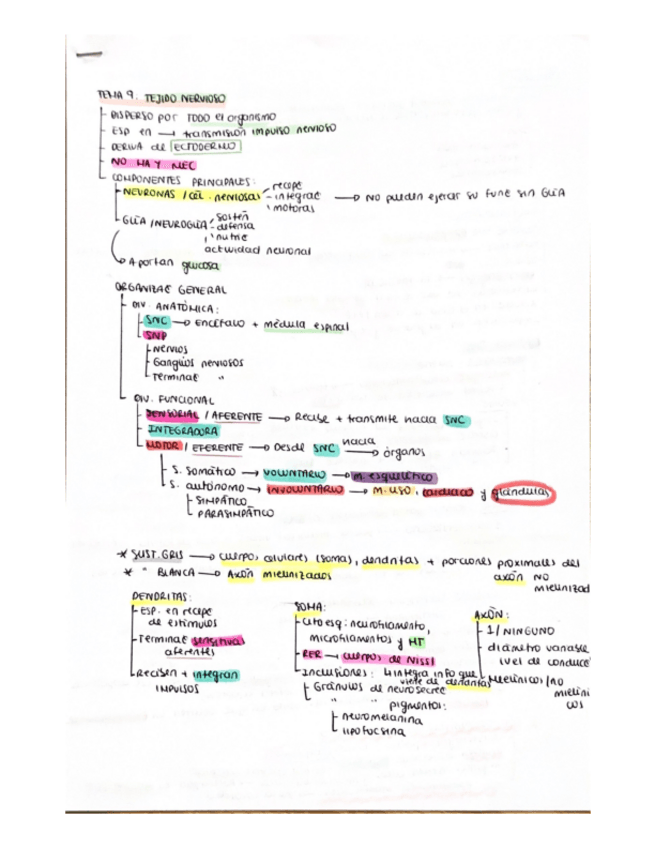 TEMA 9. TEJIDO NERVIOSO
DISPERSO POR TODO el organismo
ESP en → transmisión impulso nervioso
DERIVA de ECTODERMO
NO HAY MEC
COMPONENTES PRINCIPALES:
NEURONAS / CÉL. nerviosas - recepc - integrac - motoras → NO pueden ejercer su func sin GLÍA
GLÍA / NEUROGLÍA - sostén - defensa - nutric
actividad neuronal
Aportan glucosa
ORGANIZAC GENERAL
DIV. ANATÓMICA:
SNC → Encéfalo + médula espinal
SNP
Nervios
Ganglios nerviosos
Terminac "
DIV. FUNCIONAL
SENSORIAL / AFERENTE → Recibe + transmite hacia SNC
INTEGRADORA
MOTOR / EFERENTE → Desde SNC hacia → órganos
S. somático → VOLUNTARIO → m. esquelético
S. autónomo → INVOLUNTARIO → m. liso, cardiaco y glándulas
SIMPÁTICO
PARASIMPÁTICO
* SUST. GRIS → cuerpos celulares (somas), dendritas + porciones proximales del axón NO mielinizad
* " BLANCA → Axón mielinizados
DENDRITAS:
Esp. en recepc de estímulos
Terminac sensitivas aferentes
Reciben + integran IMPULSOS
SOMA:
Citoesq: neurofilamento,
microfilamentos y MT
RER → cuerpos de NISSL
Inclusiones: integra info que viene de dendritas
Gránulos de neurosecrec
" " pigmentos:
neuromelanina
lipofucsina
AXÓN:
1 / NINGUNO
diámetro variable
(vel de conducc
Mielínicos / no mielíni
cos